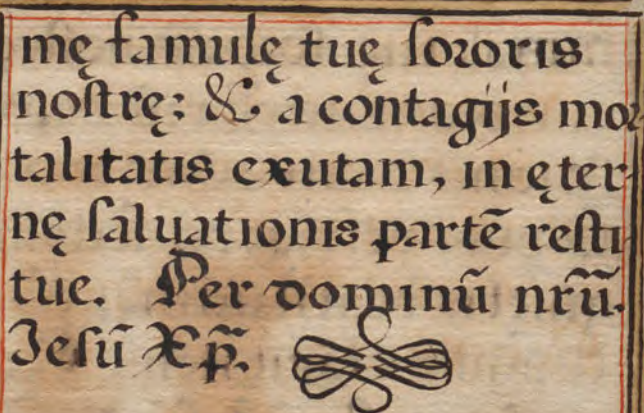 mę famulę tuę ſororis
noſtrę: & a contagijs mor
talitatis exutam, in ęter
nę ſaluationis partē reſti
tue. Per dominū nr̄ū.
Jeſū Xp̄.